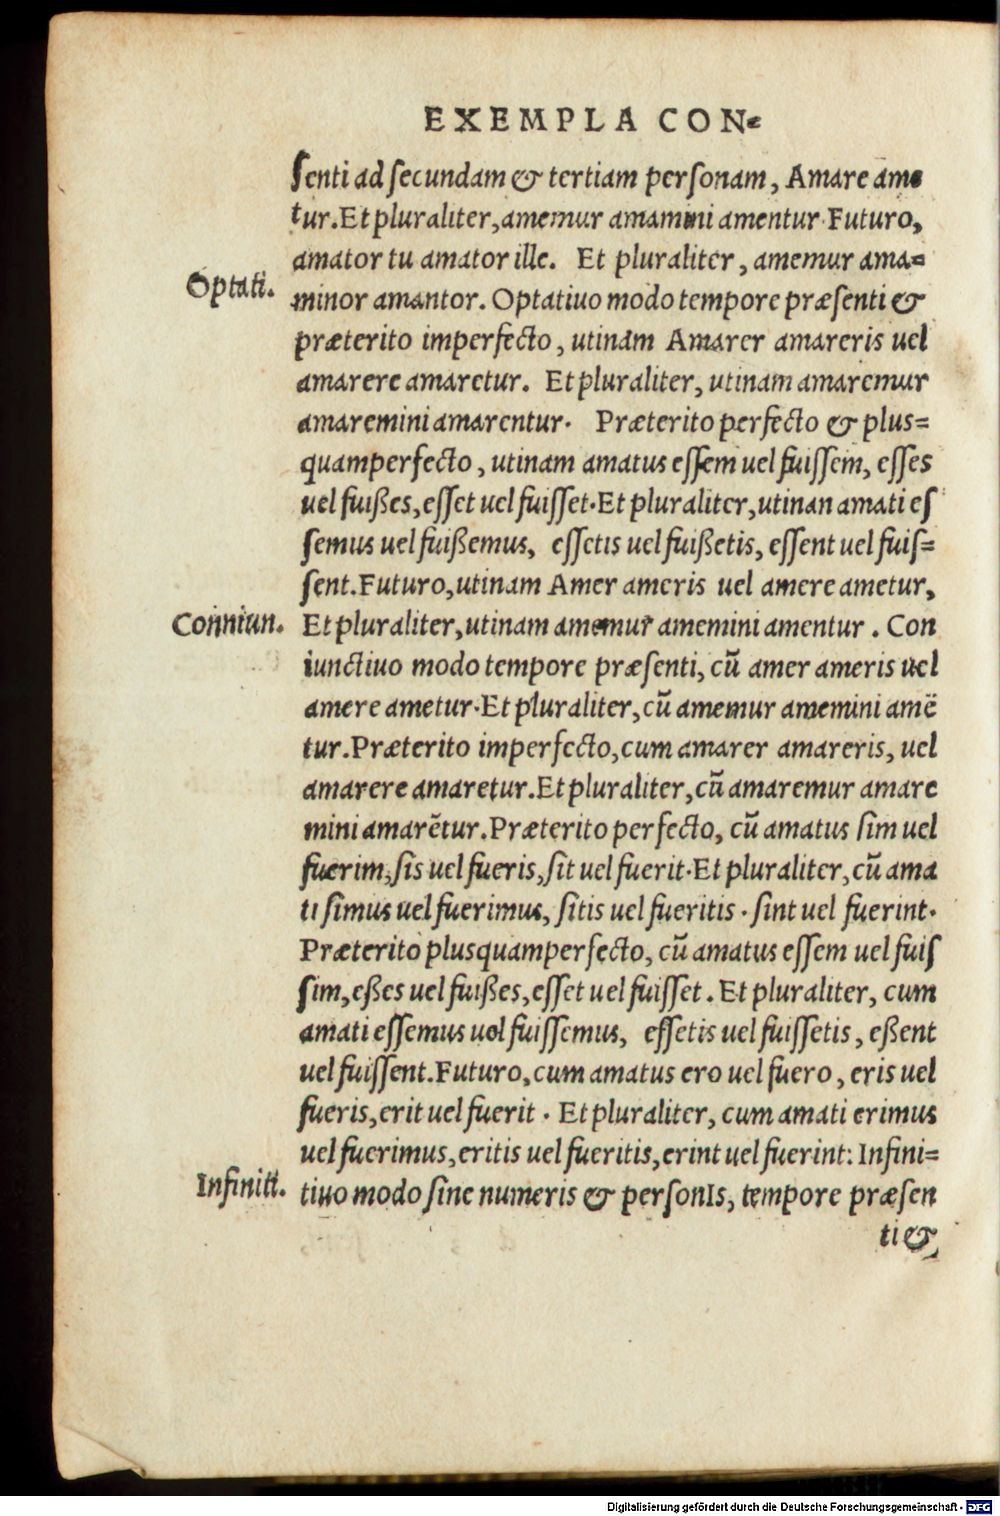 EXEMPLA CON⸗
ſenti ad ſecundam & tertiam perſonam, Amare ame
tur. Et pluraliter, amemur amamini amentur. Futuro,
amator tu amator ille. Et pluraliter, amemur ama⸗
Optati.
minor amantor. Optatiuo modo tempore præſenti &
præterito imperfecto, utinam Amarer amareris uel
amarere amaretur. Et pluraliter, utinam amaremur
amaremini amarentur. Præterito perfecto & plus⸗
quamperfecto, utinam amatus eſſem uel fuiſſem, eſſes
uel fuißes, eſſet uel fuiſſet. Et pluraliter, utinan amati eſ
ſemus uel fuißemus, eſſetis uel fuißetis, eſſent uel fuiſ⸗
ſent. Futuro, utinam Amer ameris uel amere ametur,
Coniiun.
Et pluraliter, utinam amemur amemini amentur. Con
iunctiuo modo tempore præſenti, cū amer ameris uel
amere ametur. Et pluraliter, cū amemur amemini amē
tur. Præterito imperfecto, cum amarer amareris, uel
amarere amaretur. Et pluraliter, cū amaremur amare
mini amarētur. Præterito perfecto, cū amatus ſim uel
fuerim, ſis uel fueris, ſit uel fuerit. Et pluraliter, cū ama
ti ſimus uel fuerimus, ſitis uel fueritis. ſint uel fuerint.
Præterito plusquamperfecto, cū amatus eſſem uel fuiſ
ſim, eßes uel fuißes, eſſet uel fuiſſet. Et pluraliter, cum
amati eſſemus uel fuiſſemus, eſſetis uel fuiſſetis, eßent
uel fuiſſent. Futuro, cum amatus ero uel fuero, eris uel
fueris, erit uel fuerit. Et pluraliter, cum amati erimus
uel fuerimus, eritis uel fueritis, erint uel fuerint: Infini⸗
Infiniti.
tiuo modo ſine numeris & perſonIs, tempore præſen
ti &
Digitalisierung gefördert durch die Deutsche Forschungsgemeinschaft - DFG